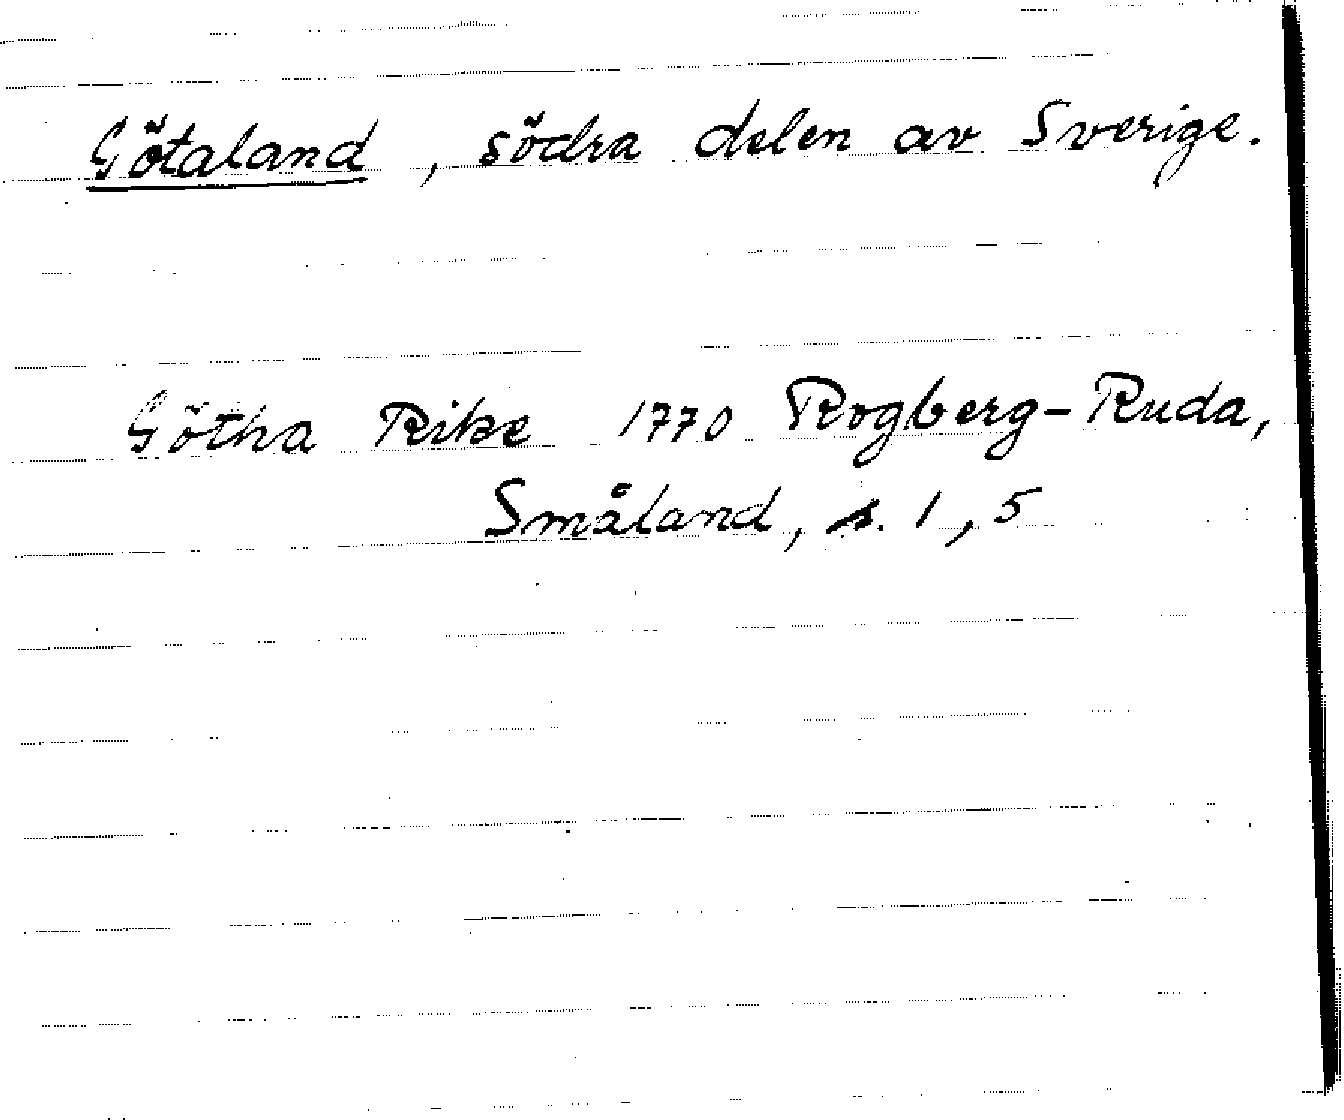 Götaland, södra delen av Sverige.
Götha Rike 1770 Rogberg-Ruda,
Småland, s. 1, 5